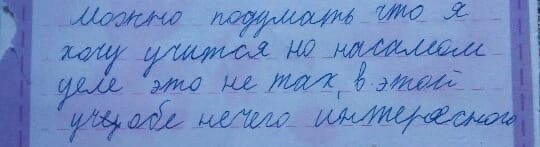 Можно подумать что я
хочу учится но насамом
деле это не так, в этой
учеобе нечего интересного